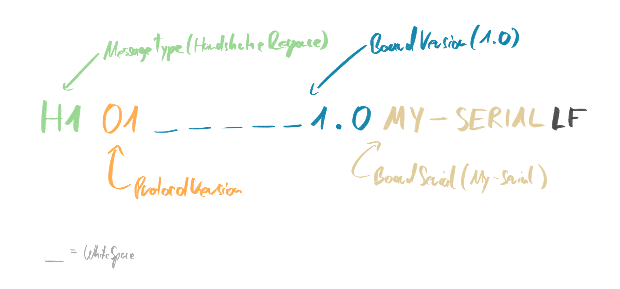 MessageType (Handshake Response)
BoardVersion (1.0)
H1 01 _ _ _ _ _ 1.0 MY-SERIAL LF
ProtocolVersion
BoardSerial (My-Serial)
_ = WhiteSpace